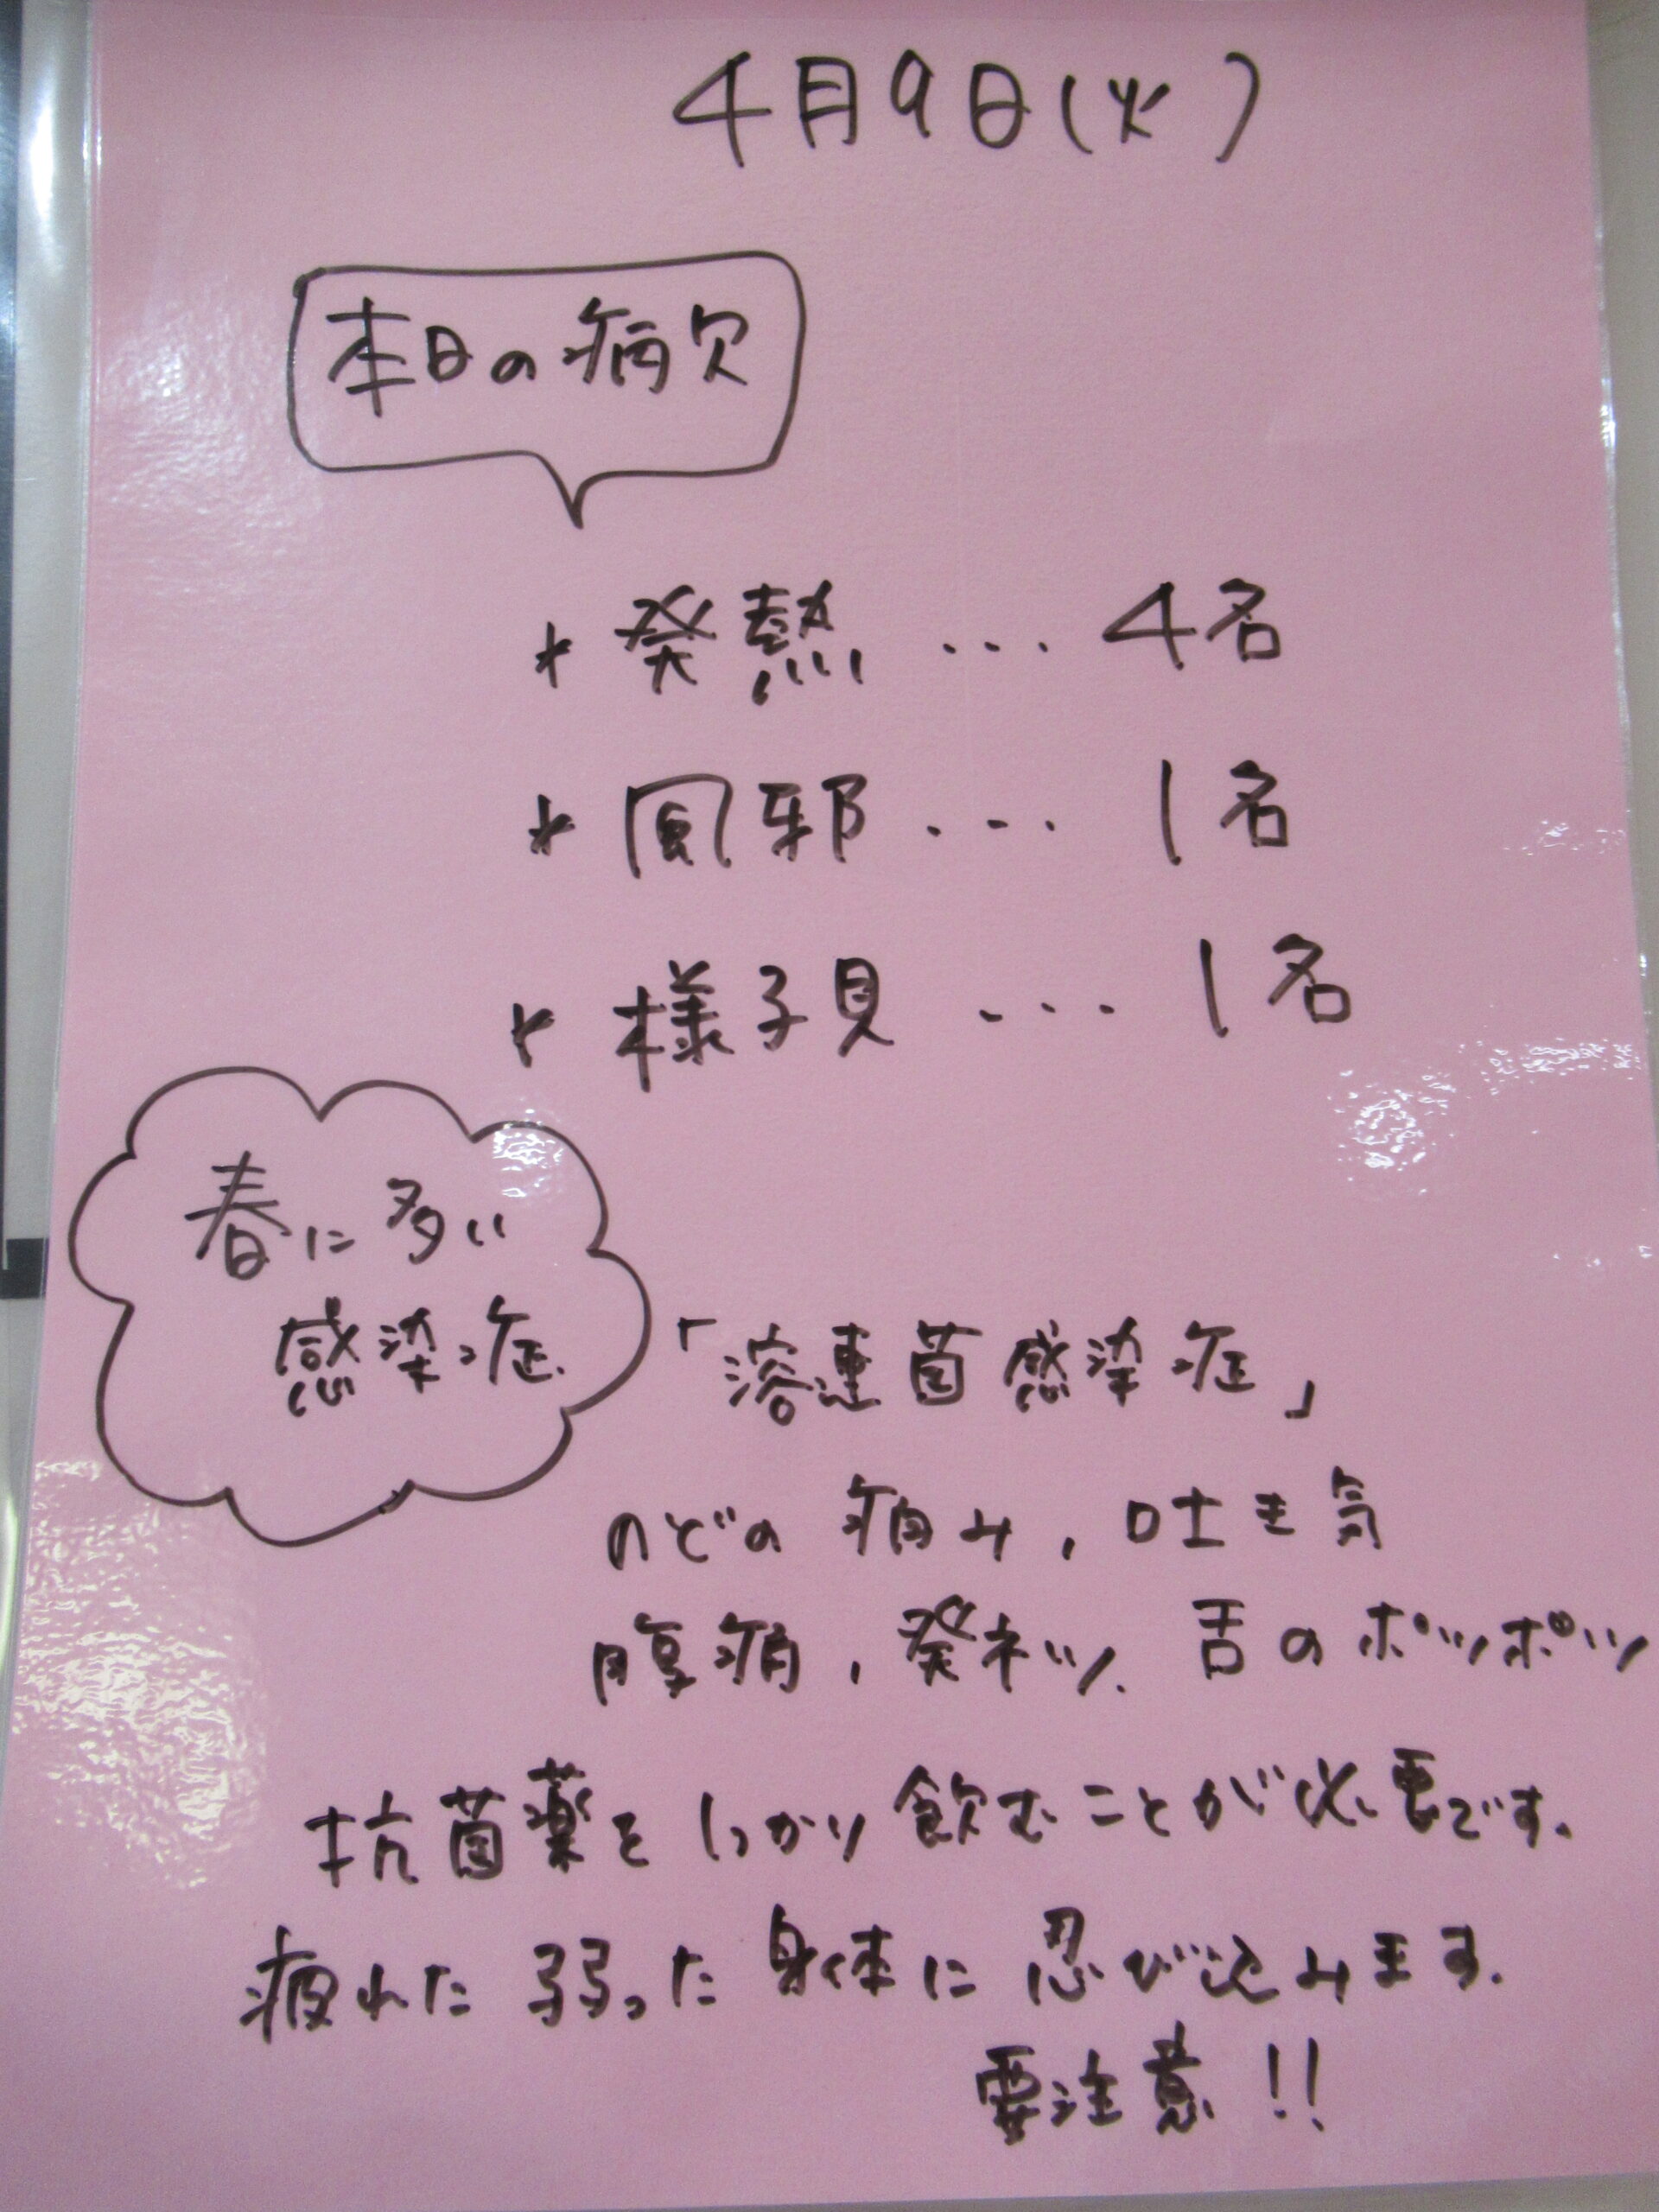 4月9日(火)
本日の病欠
* 発熱 ... 4名
* 風邪 ... 1名
* 様子見 ... 1名
春に多い
感染症
「溶連菌感染症」
のどの痛み, 吐き気
腹痛, 発ネツ, 舌のポツポツ
抗菌薬をしっかり飲むことが必要です。
疲れた弱った身体に忍び込みます。
要注意!!